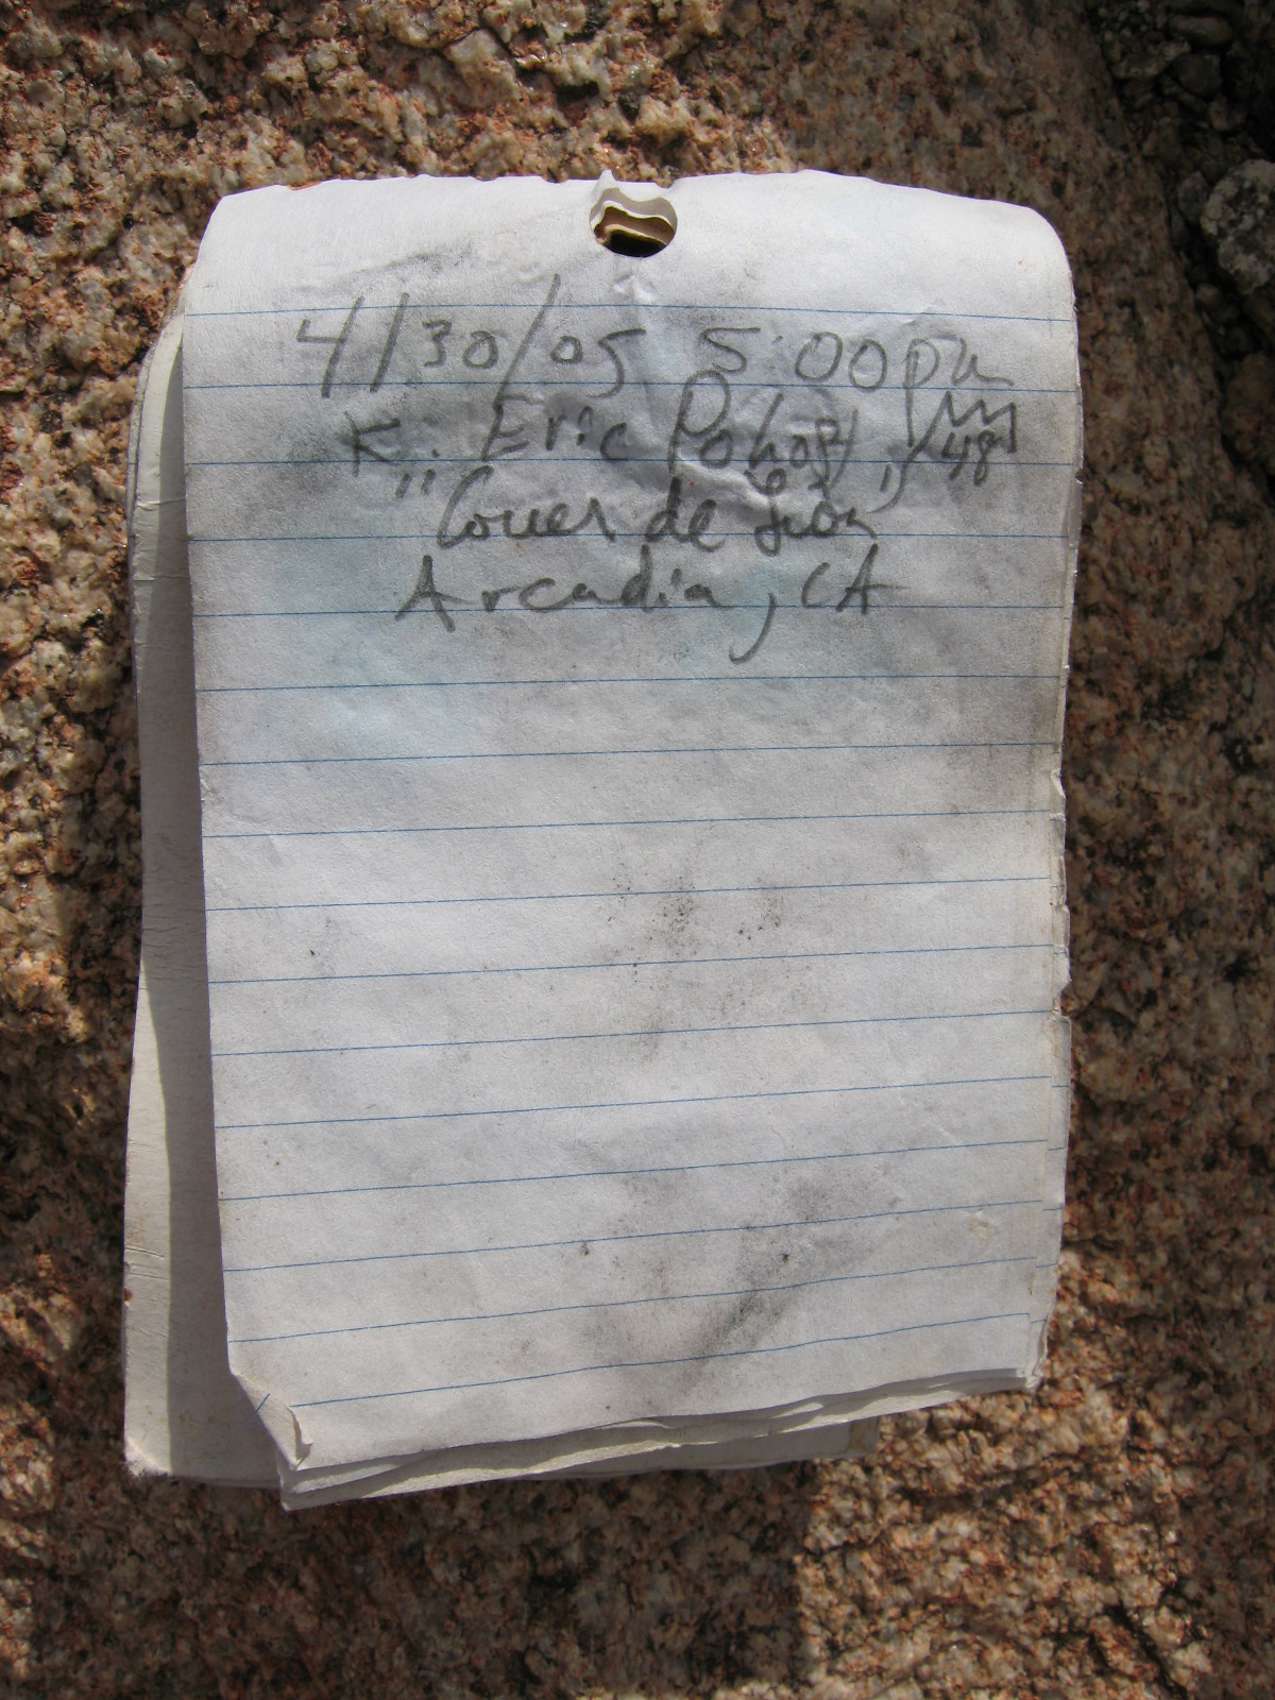 4/30/05 5:00pm
K. Eric Pohopj, 48
"Couer de Lion
Arcadia, CA